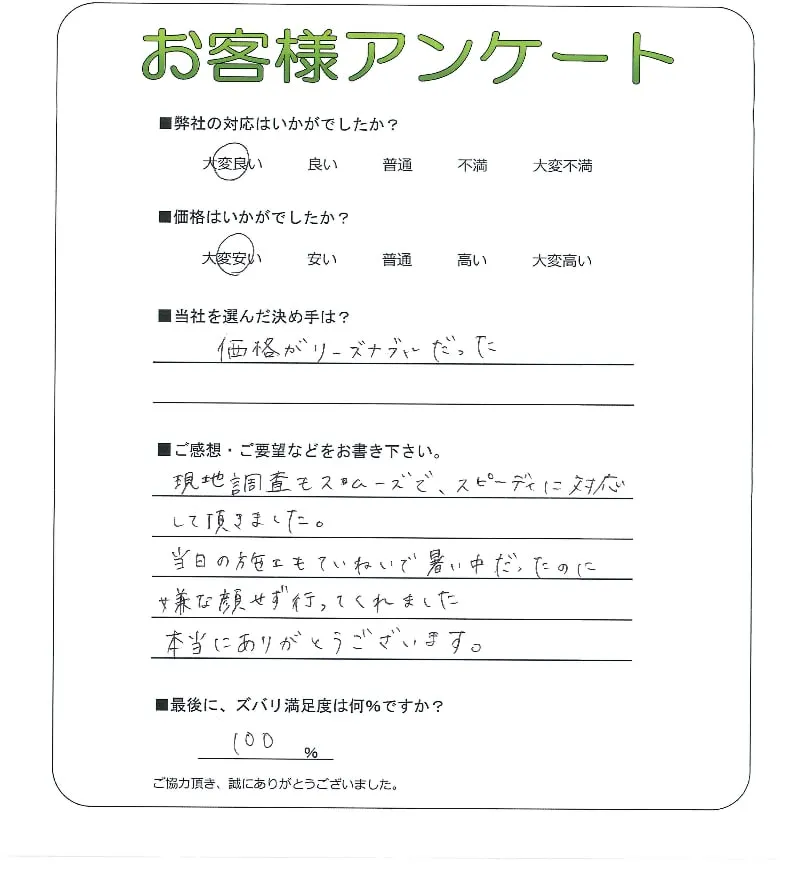 お客様アンケート
■弊社の対応はいかがでしたか？
大変良い 良い 普通 不満 大変不満
■価格はいかがでしたか？
大変安い 安い 普通 高い 大変高い
■当社を選んだ決め手は？
価格がリーズナブルだった
■ご感想・ご要望などをお書き下さい。
現地調査もスムーズで、スピーディに対応
して頂きました。
当日の施工もていねいで暑い中だったのに
嫌な顔せず行ってくれました
本当にありがとうございます。
■最後に、ズバリ満足度は何%ですか？
100 %
ご協力頂き、誠にありがとうございました。